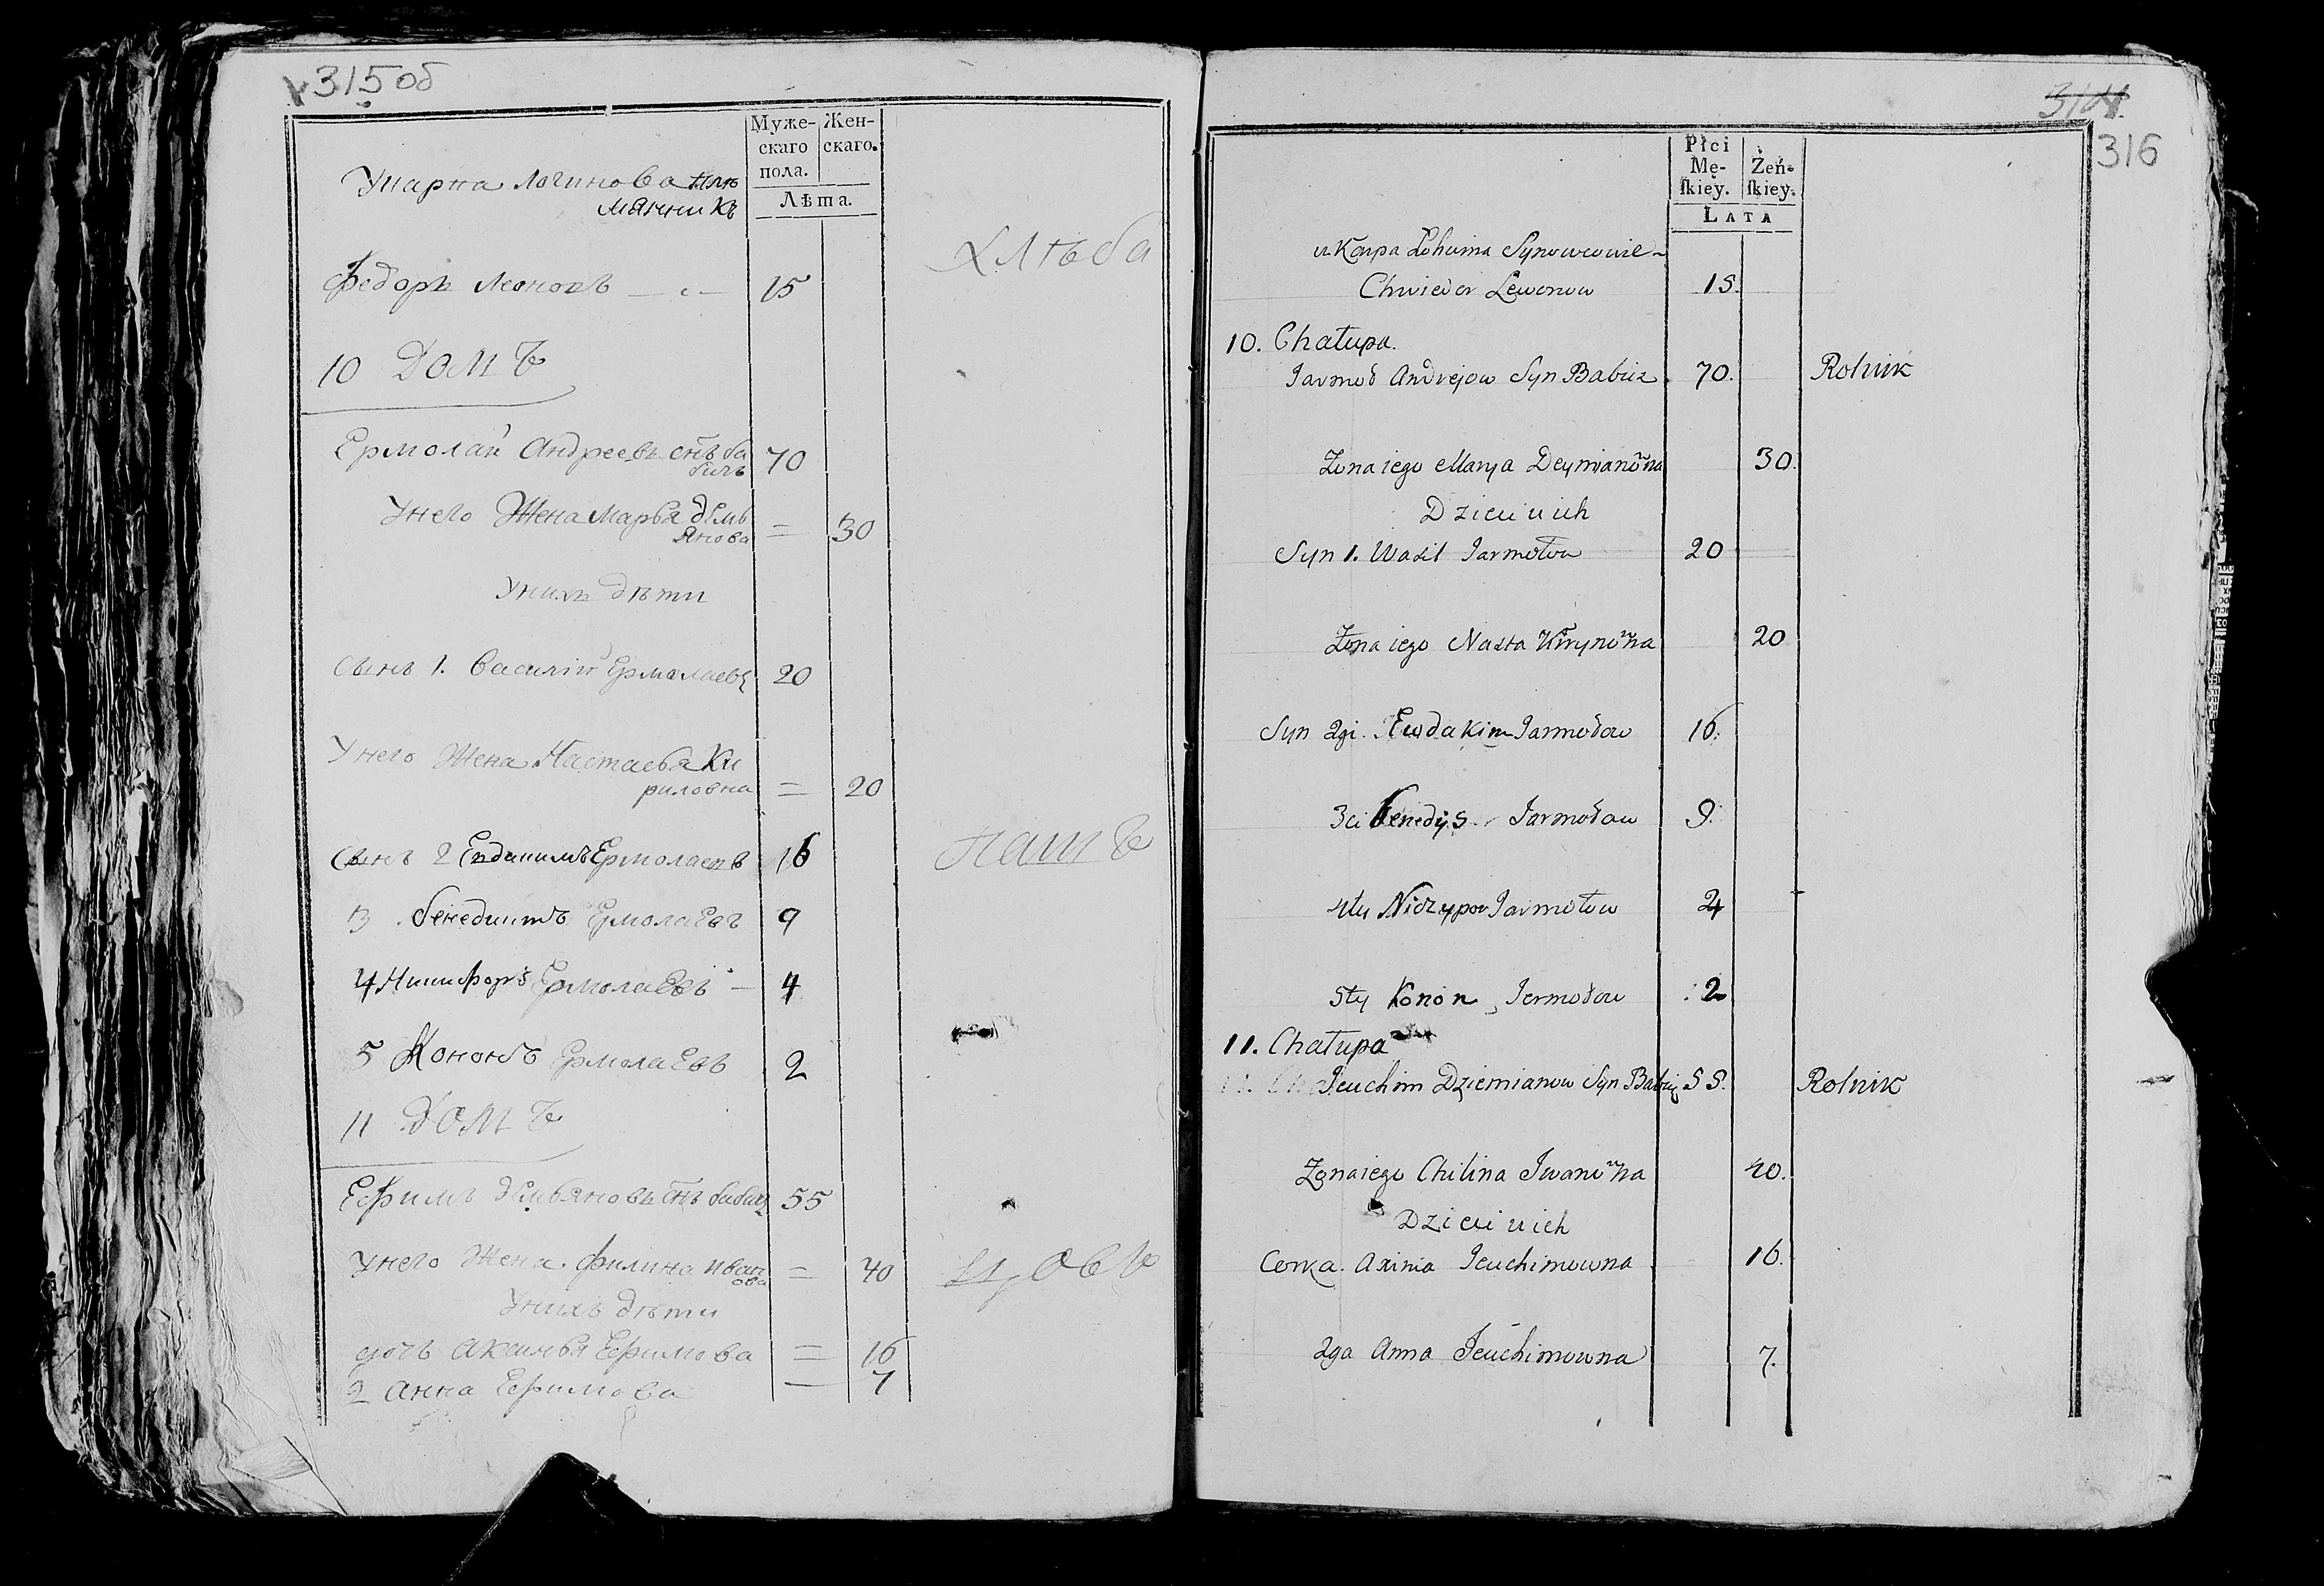 315 об
Муже- Жен-
скаго скаго.
пола.
Лѣта.
У Карпа Логинова пле
мянникъ
Федоръ Леоновъ — 15
хлѣба
10 Домъ
Ермолай Андреевъ снъ ба
бичъ 70
У него Жена Марья Демь
янова = 30
У нихъ дѣти
Сынъ 1. Василій Ермолаевъ 20
У него Жена Настасья Ки
риловна = 20
Сынъ 2 Евдакимъ Ермолаевъ 16
пашъ
3 Бенедиктъ Ермолаевъ 9
4 Никифоръ Ермолаевъ — 4
5 Кононъ Ермолаевъ 2
11 Домъ
Ефимъ Демьяновъ снъ бабичъ 55
У него Жена Филина Иван
ова = 40
У нихъ дѣти
дочь Аксинья Ефимова = 16
2 Анна Ефимова — 7
316
Płci
Mę- Żeń-
ſkiey. ſkiey.
LATA
u Karpa Łohuina Synowcowie
Chwiedor Lewonow 15.
10. Chałupa.
Jarmoł Andrejow Syn Babicz 70. Rolnik
Żona iego Marya Deymianowna 30.
Dzieci u ich
Syn 1. Wasil Jarmołow 20
Żona iego Nasta Kirynowna 20
Syn 2gi. Ewdakim Jarmołow 16.
3ci Benedys Jarmołow 9.
4ty Niczypor Jarmołow 4
5ty Konon Jarmołow 2
11. Chałupa
Jeuchim Dziemianow Syn Babicz 55. Rolnik
Żona iego Chilina Iwanowna 40.
Dzieci u ich
Corka. Axinia Jeuchimowna 16.
2ga Anna Jeuchimowna 7.